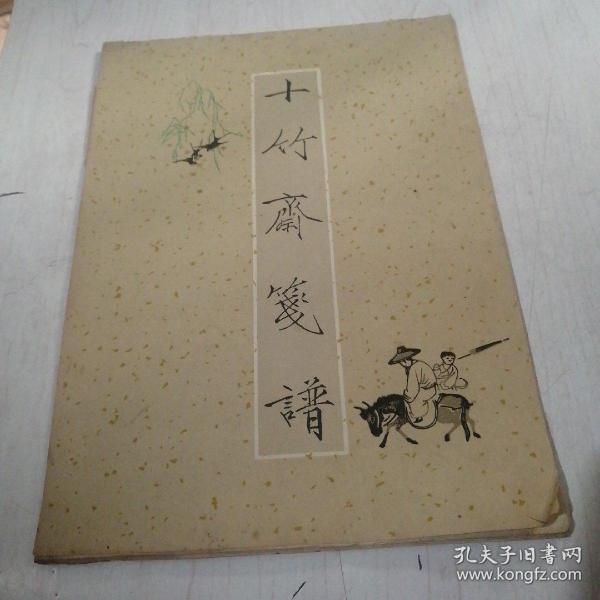 十竹齋箋譜
孔夫子旧书网
www.kongfz.com